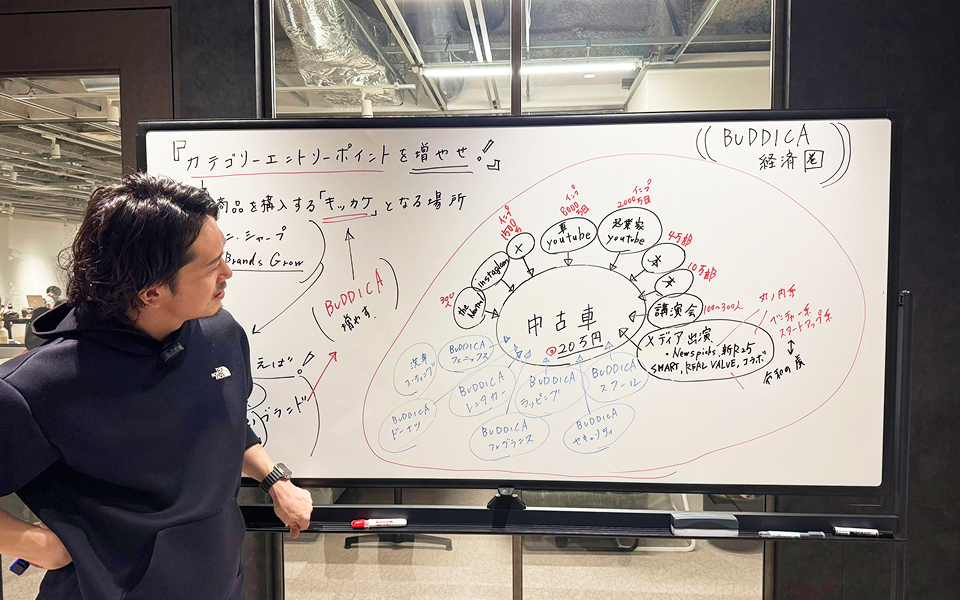 『カテゴリーエントリーポイントを増やせ！』
商品を購入する「キッカケ」となる場所
ン・シャープ
Brands Grow
BUDDICA
増やす.
えば.
ブランド
BUDDICA
経済圏
the
300人
Instagram
X
インプ
1500万
車
youtube
インプ
8000万回
起業家
youtube
インプ
2000万回
本
4万部
本
10万部
講演会
100〜300人
メディア出演
・Newspicks, 新R25
SMART, REAL VALUE, コラボ
丸ノ内系
ベンチャー系
スタートアップ系
令和の虎
中古車
20万円
洗車
コーティング
BUDDICA
フェニックス
BUDDICA
レンタカー
BUDDICA
ラッピング
BUDDICA
スクール
BUDDICA
ドーナツ
BUDDICA
フレグランス
BUDDICA
セキュリティ
THE NORTH FACE